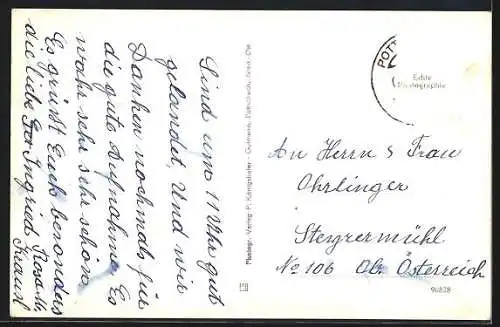 Sind um 11 Uhr gut
gelandet, Und wir
Danken nochmals für
die gute Aufnahme. Es
wahr sehr sehr schön
Es grüßt Euch besonders
die liebe Ingried
Photogr. Verlag P. Königshofer
POT
Echte
Photographie
An Herrn & Frau
Ohrlinger
Steyrermühl
No 106 Ob. Österreich
96828